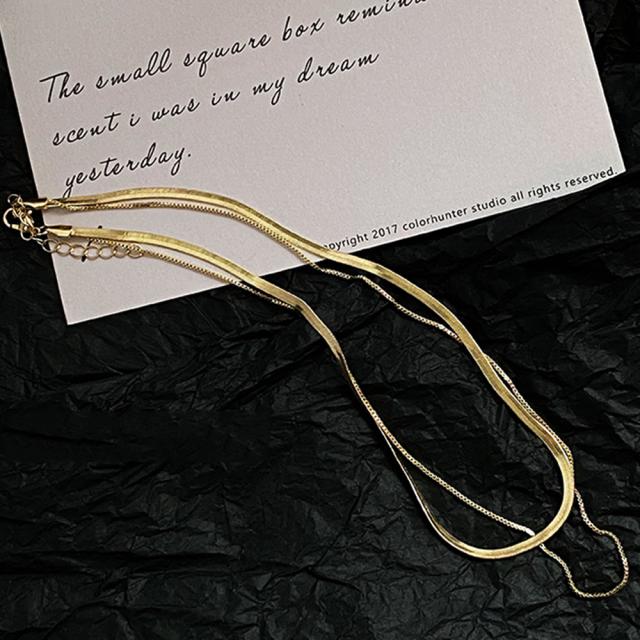 The small square box
scent i was in my dream
yesterday.
copyright 2017 colorhunter studio all rights reserved.